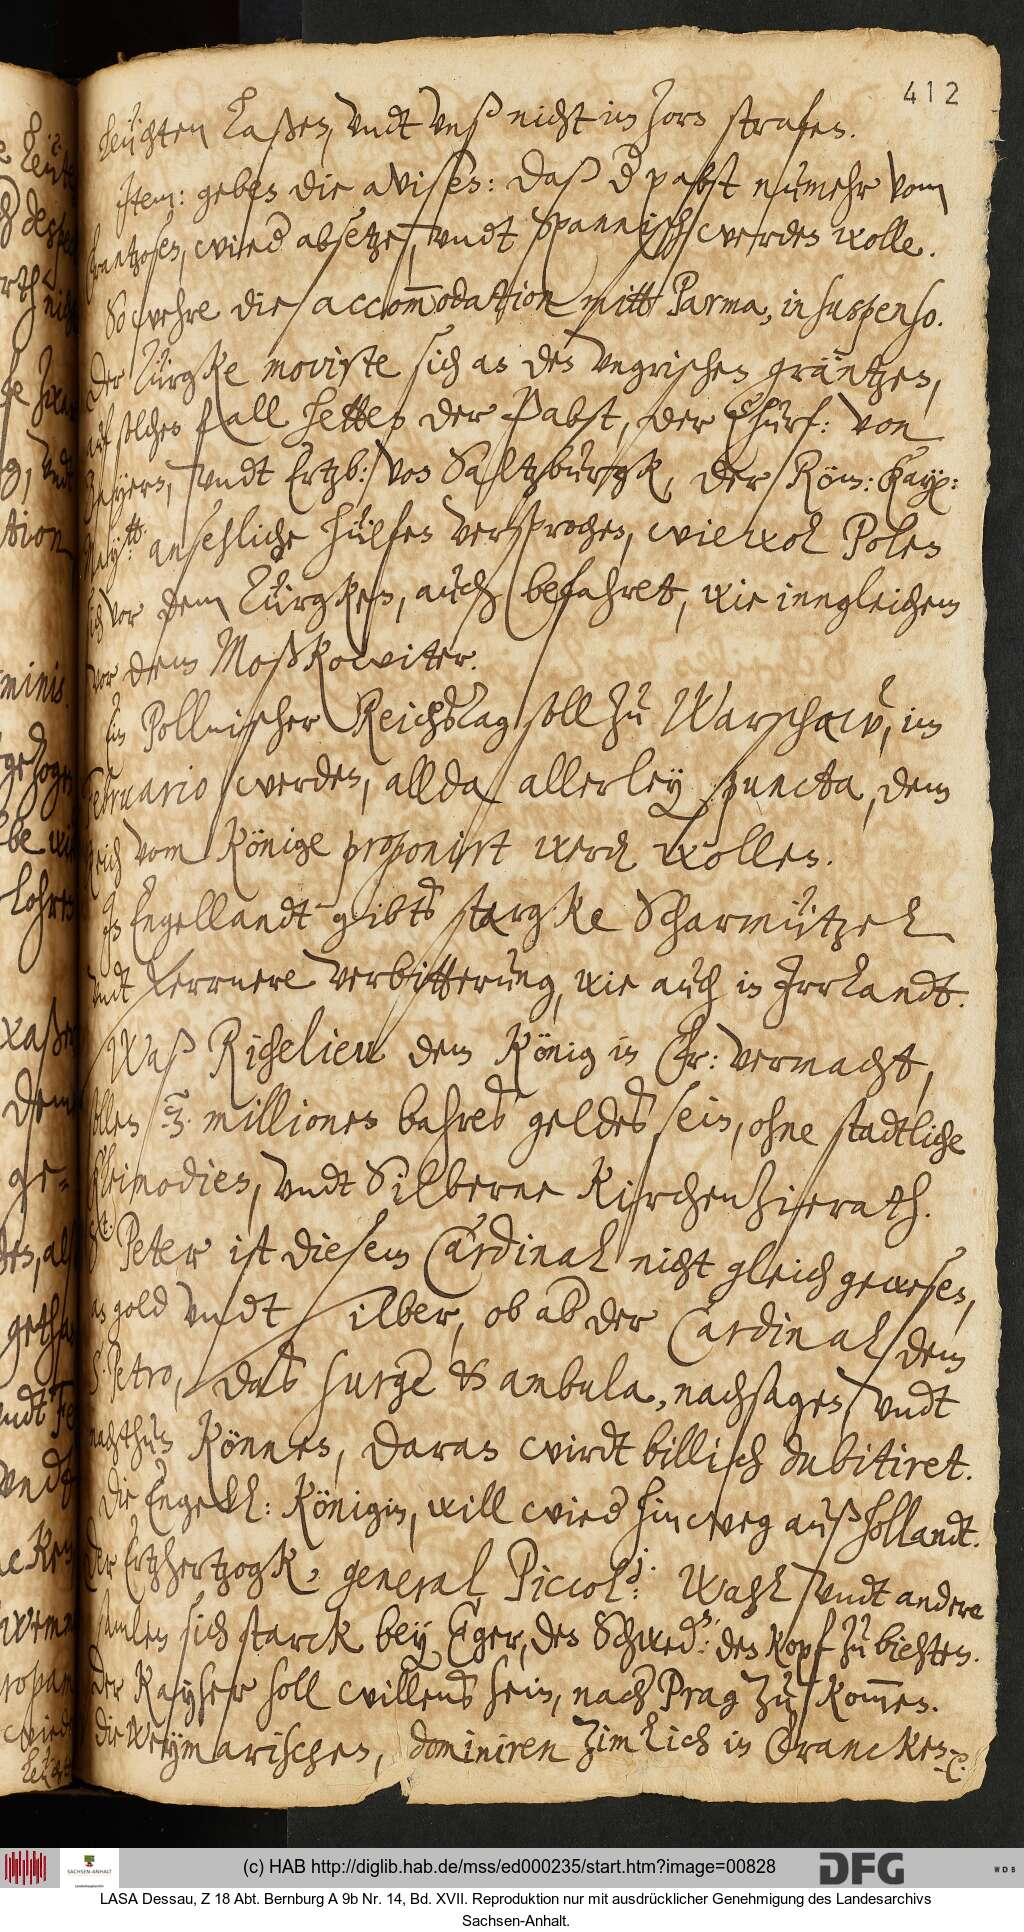 412
leüchten laßen, vndt vnß nicht im zorn strafen.
Item: geben die avisen: daß der pabst nůmehr vom
Frantzosen, wied absetzen, vndt Spannisch werden wolle.
So wehre die accom̅odation mitt Parma, in suspenso.
Der Türgke moviste sich an den vngrischen gräntzen,
auf solchen fall hetten der Pabst, der Churf: von
Bayern, vndt Ertzb: von Saltzburgk, der Röm: Kay:
May:tt ansehliche hülfen versprochen, wiewol Polen
sich vor dem Türgken, auch befahret, wie inngleichem
vor dem Moßkowiter.
Ein Pollnischer Reichstag soll zu Warschow, im
Februario werden, allda allerley puncta, dem
Reich vom Könige proponirt werden wollen.
In Engellandt gibts stargke Scharmützel
vndt fernere verbitterung, wie auch in Irrlandt.
Waß Richelieu dem König in Fr: vermacht,
sollen 3 millionen bahres geldes sein, ohne stadtliche
Kleinodien, vndt Silberne Kirchenzierath.
S. Peter ist diesem Cardinal nicht gleich gewesen,
an gold vndt silber, ob ab der Cardinal dem
S. Petro, das surge & ambula, nachsagen vndt
nachthun können, daran wirdt billich dubitiret.
Die Engell: Königin, will wied hinweg auß hollandt.
Der Ertzhertzogk, general Piccol: Wahl vndt andere
samlen sich starck bey Eger, den Schwed: den kopf zu biehten.
Der Kayser soll willens sein, nach Prag zu kom̅en.
Die Weymarischen, dominiren zimlich in Francken.
(c) HAB http://diglib.hab.de/mss/ed000235/start.htm?image=00828
SACHSEN-ANHALT
DFG
WDB
LASA Dessau, Z 18 Abt. Bernburg A 9b Nr. 14, Bd. XVII. Reproduktion nur mit ausdrücklicher Genehmigung des Landesarchivs
Sachsen-Anhalt.